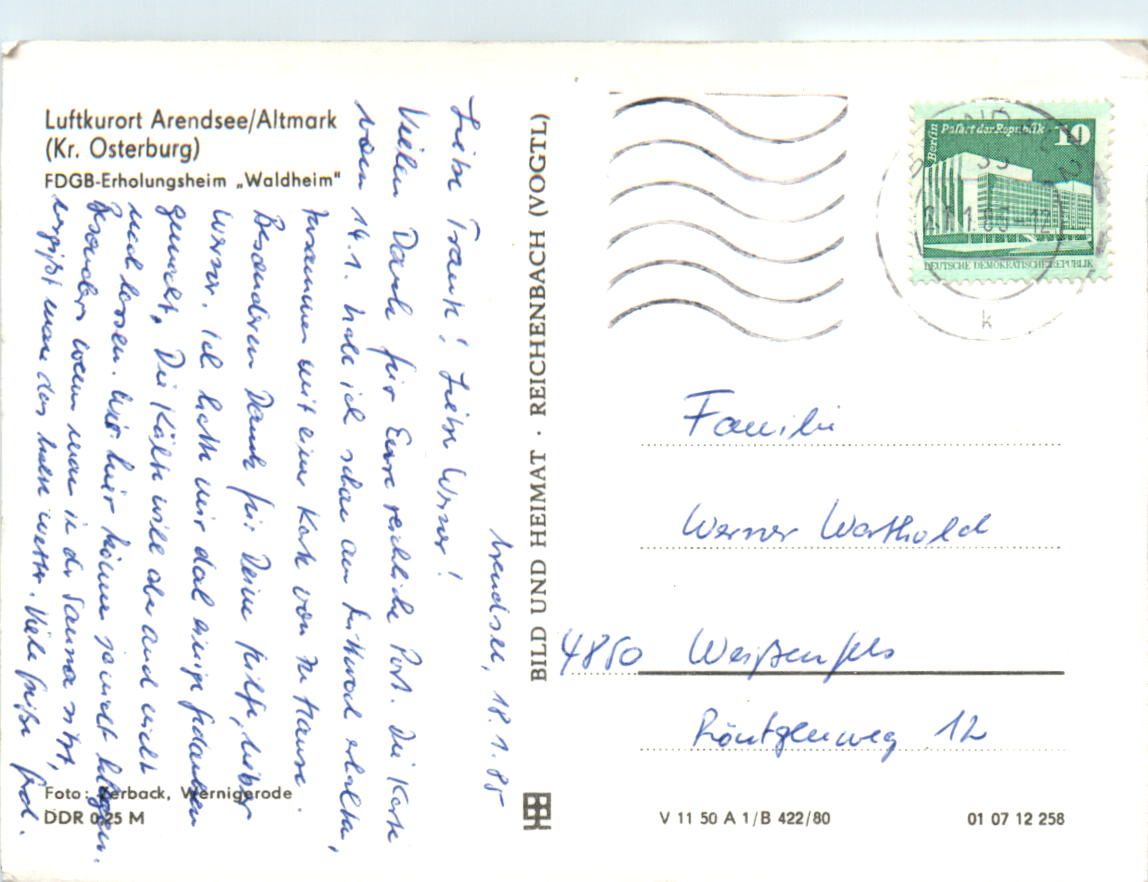 Luftkurort Arendsee/Altmark
(Kr. Osterburg)
FDGB-Erholungsheim „Waldheim"
Arendsee, 18.1.85
Liebe Traute! Lieber Werner!
Vielen Dank für Eure reichliche Post. Die Karte
vom 14.1. habe ich schon am Mittwoch erhalten,
zusammen mit einer Karte von zu Hause.
Besonderen Dank für Deine Hilfe, lieber
Werner. Ich hatte mir da einige Gedanken
gemacht. Die Kälte will aber auch nicht
nachlassen. Wir hier können ja nicht klagen.
Besonders wenn man in der Sauna sitzt,
vergißt man das Wetter. Viele Grüße
Foto: Zerback, Wernigerode
DDR 0,25 M
BILD UND HEIMAT · REICHENBACH (VOGTL)
V 11 50 A 1/B 422/80
01 07 12 258
Berlin Palast der Republik 10
DEUTSCHE DEMOKRATISCHE REPUBLIK
k
Familie
Werner Warthold
4850 Weißenfels
Röntgenweg 12